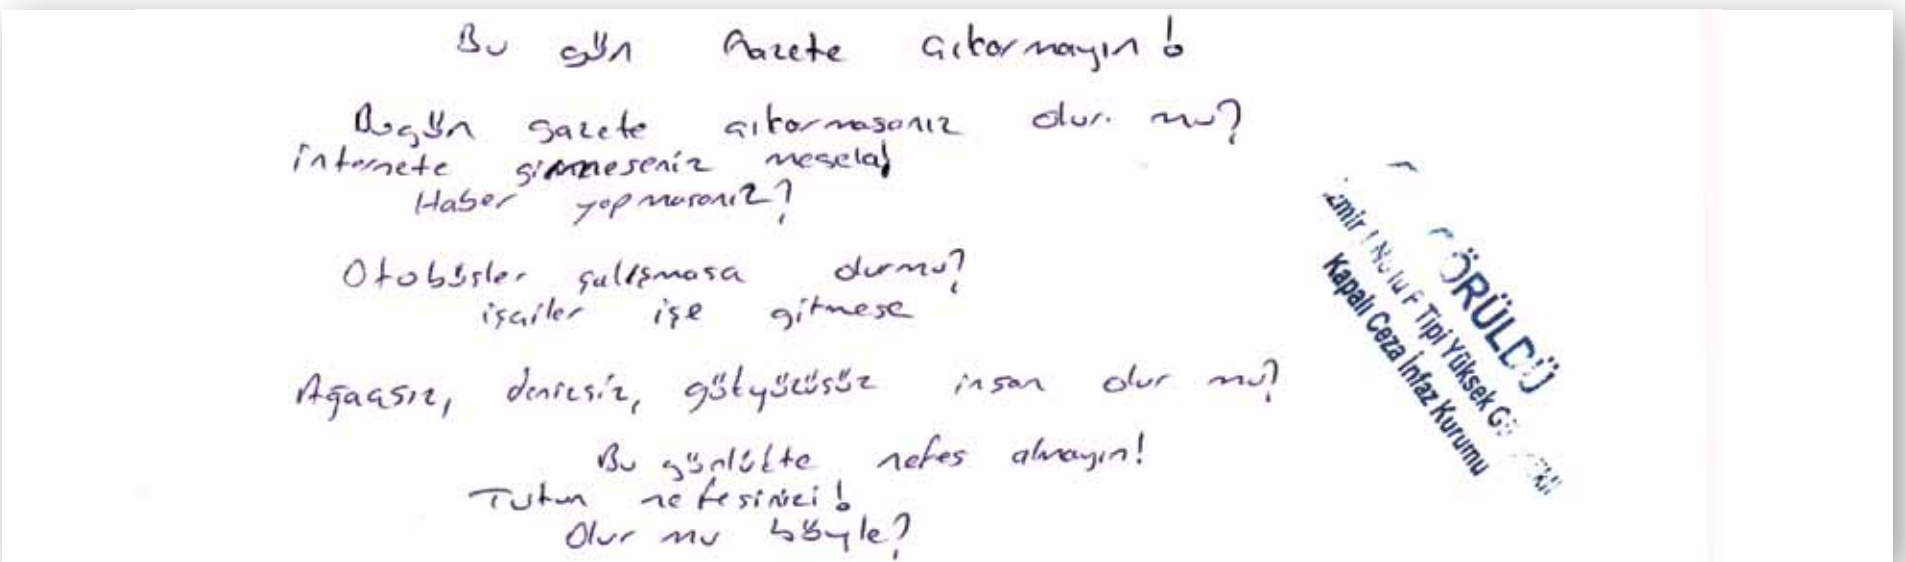 Bu gün Gazete çıkarmayın!
Bugün gazete çıkarmasanız olur mu?
internete girmeseniz mesela!
Haber yapmasanız?
Otobüsler çalışmasa olurmu?
işçiler işe gitmese
Ağaçsız, denizsiz, gökyüzüsüz insan olur mu?
Bu günlükte nefes almayın!
Tutun nefesinizi!
Olur mu böyle?
GÖRÜLDÜ
İzmir 1 Nolu F Tipi Yüksek
Kapalı Ceza İnfaz Kurumu